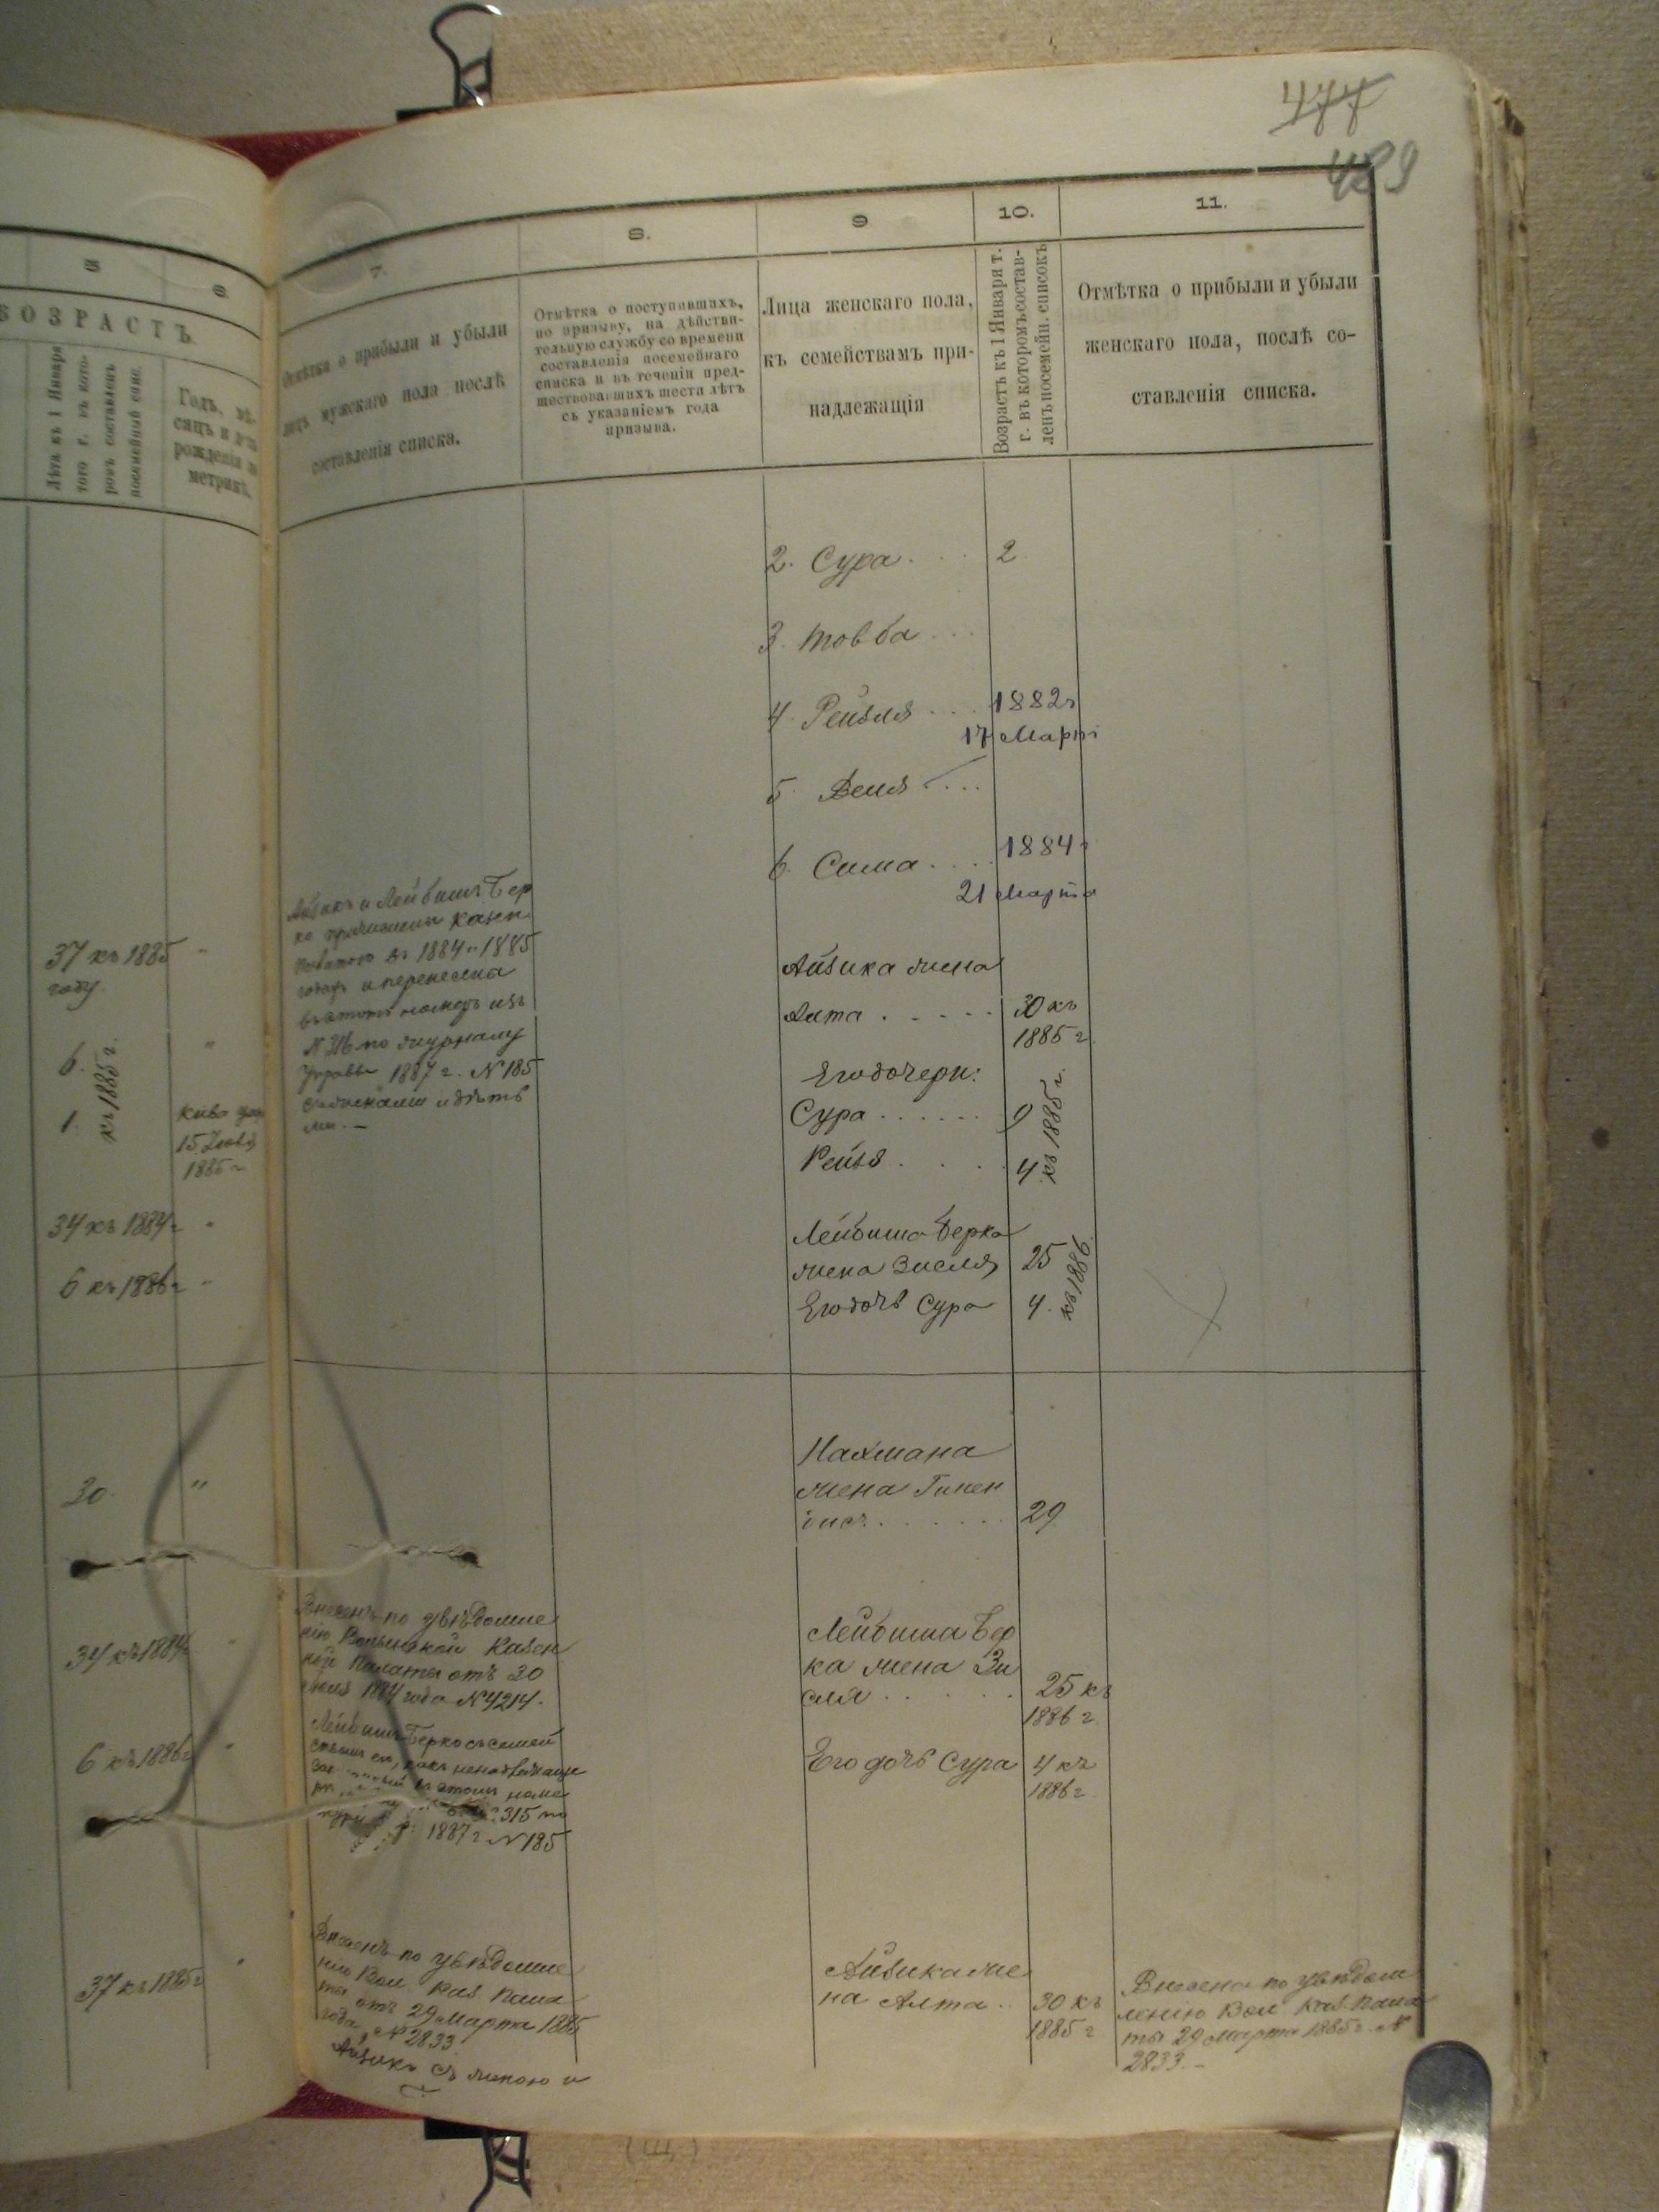 477
489
5
6.
7.
8.
9
10.
11.
ВОЗРАСТЪ.
Лѣта къ 1 Января
того г. въ кото-
ромъ составленъ
посемейный спис.
Годъ, мѣ-
сяцъ и день
рожденія по
метрикѣ.
Отмѣтка о прибыли и убыли
лицъ мужскаго пола послѣ
составленія списка.
Отмѣтка о поступившихъ,
по призыву, на дѣйстви-
тельную службу со времени
составленія посемейнаго
списка и въ теченіи пред-
шествовавшихъ шести лѣтъ
съ указаніемъ года
призыва.
Лица женскаго пола,
къ семействамъ при-
надлежащія
Возрастъ къ 1 Января т.
г. въ которомъ состав-
ленъ посемейн. списокъ
Отмѣтка о прибыли и убыли
женскаго пола, послѣ со-
ставленія списка.
2. Сура 2
3. Товба
4. Рейзля 1882 г
17 Марта
5. Веля
6. Сима 1884 г
21 Марта
37 къ 1885
году.
6.
1.
къ 1885 г.
15
1885 г
34 къ 1884 г
6 къ 1886 г
Айзикъ и Лейбишъ Бер
ко причислены Казен.
Палатою въ 1884 и 1885
годахъ и перенесены
въ этотъ номеръ изъ
№ 316 по журналу
Управы 1887 г. № 185
съ женами и дѣть
ми. —
Айзика жена
Алта 30 къ
1885 г.
Его дочери:
Сура 9
Рейзя 4
къ 1885 г.
Лейбиша Берка
жена Зисля 25
Его дочь Сура 4.
къ 1886.
30. "
Нахмана
жена Гинен
29
34 къ 1884 г
Внесенъ по увѣдомле
нію Волынской Казен
ной Палаты отъ 20
1884 года № 4214.
Лейбиша Бер
ка жена Зи
сля 25 къ
1886 г.
6 къ 1886 г
Лейбишъ Берко съ семей
ствомъ его, какъ
315 по
1887 г № 185
Его дочь Сура 4 къ
1886 г.
37 къ 1885 г
Внесенъ по увѣдомле
нію Вол. Каз. Пала
ты отъ 29 Марта 1885
года, № 2833.
Айзикъ съ женою и
Айзика же
на Алта 30 къ
1885 г
Внесена по увѣдом
ленію Вол Каз. Пала
ты 29 Марта 1885 г. №
2833. —